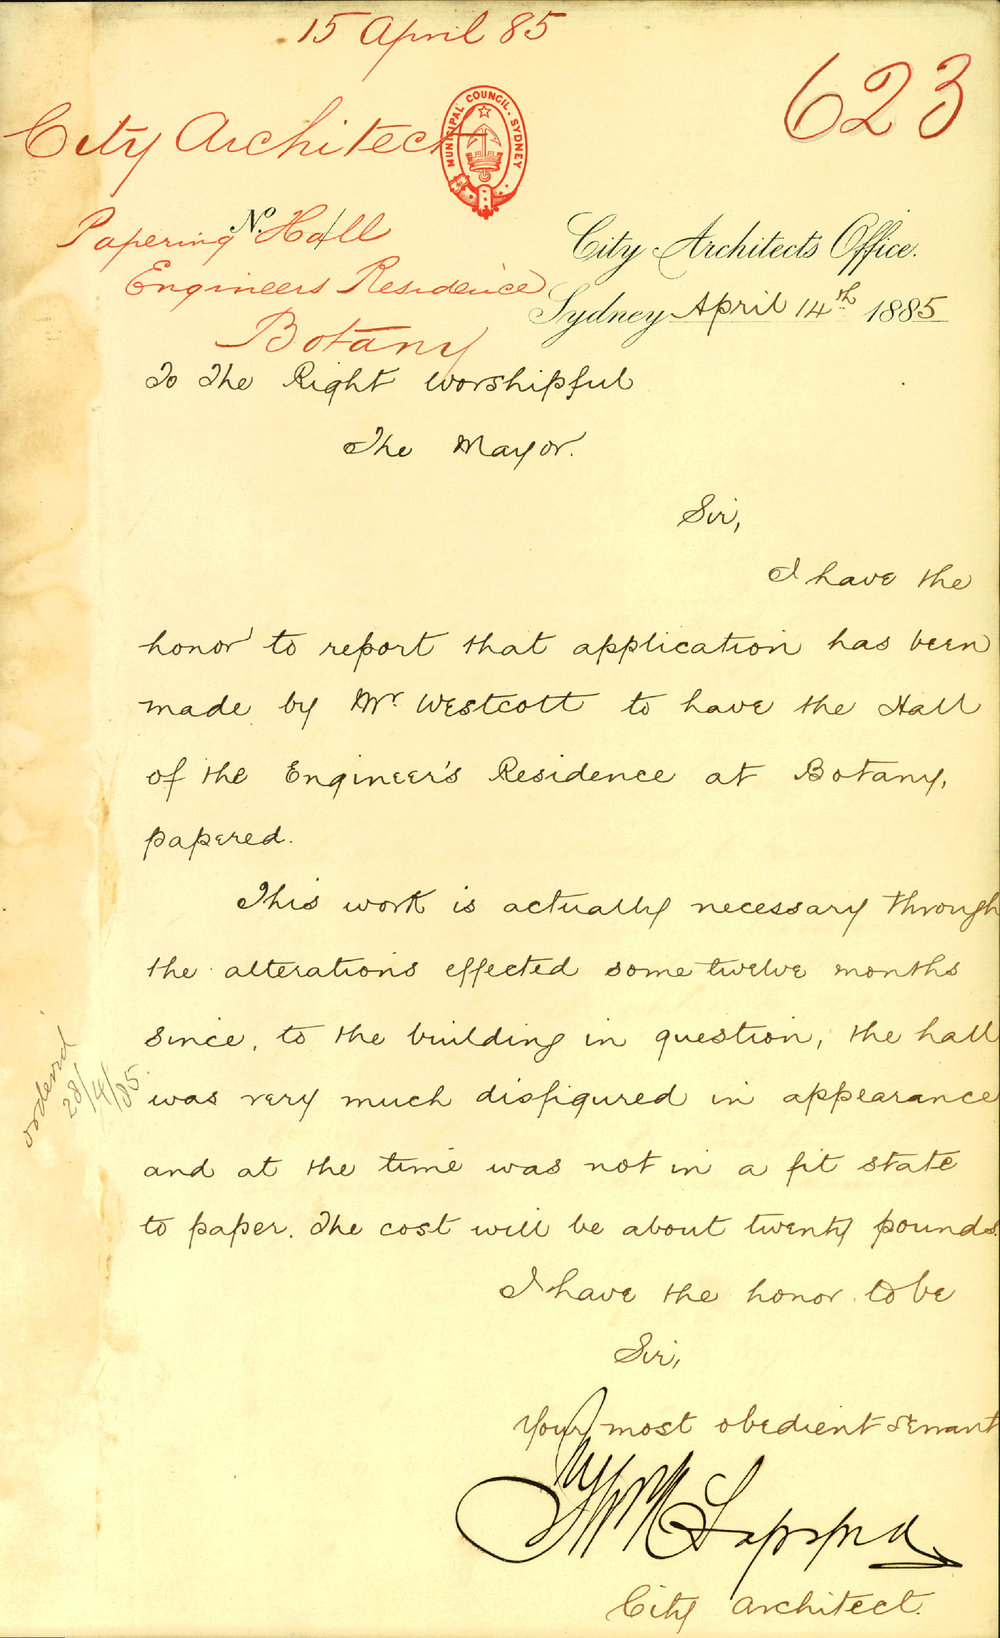 15 April 85
623
City Architect
MUNICIPAL COUNCIL. SYDNEY
No.
Papering Hall
Engineers Residence
Botany
City Architects Office.
Sydney April 14th 1885
To The Right Worshipful
The Mayor.
Sir,
I have the
honor to report that application has been
made by Mr. Westcott to have the Hall
of the Engineer's Residence at Botany,
papered.
This work is actually necessary through
the alterations effected some twelve months
since, to the building in question, the hall
was very much disfigured in appearance
and at the time was not in a fit state
to paper. The cost will be about twenty pounds.
I have the honor to be
Sir,
Your most obedient servant
City Architect.
ordered
28/4/85